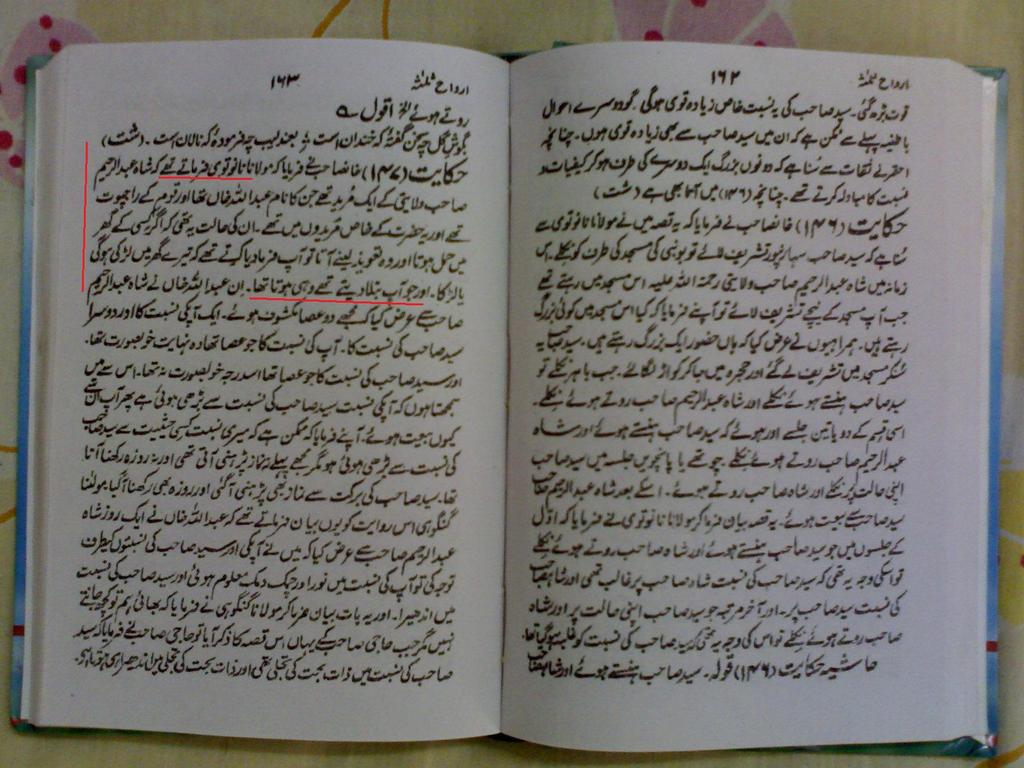 ارواح ثلثہ
۱۶۲
قوت بڑھ گئی۔ سید صاحب کی یہ نسبت خاص زیادہ قوی ہوگی۔ گو دوسرے احوال
باطنیہ پہلے سے ممکن ہے کہ ان میں سید صاحب سے بھی زیادہ قوی ہوں۔ چنانچہ
احقر نے ثقات سے سُنا ہے کہ دونوں بزرگ ایک دوسرے کی طرف ہو کر کیفیات و
نسبت کا مبادلہ کرتے تھے۔ چنانچہ (۱۴۶) میں آتا بھی ہے (شت)
حکایت (۱۴۶) خانصاحب نے فرمایا کہ یہ قصہ میں نے مولانا نانوتوی سے
سُنا ہے کہ سید صاحب سہارنپور تشریف لائے تو بونی کی مسجد کی طرف کو نکلے۔ اس
زمانہ میں شاہ عبدالرحیم صاحب ولایتی رحمۃ اللہ علیہ اس مسجد میں رہتے تھے
جب آپ مسجد کے نیچے تشریف لائے تو آپنے فرمایا کہ کیا اس مسجد میں کوئی بزرگ
رہتے ہیں۔ ہمراہیوں نے عرض کیا کہ ہاں حضور ایک بزرگ رہتے ہیں۔ سید صاحب یہ
سُنکر مسجد میں تشریف لے گئے اور حجرہ میں جا کر کواڑ لگا لئے۔ جب باہر نکلے تو
سید صاحب ہنستے ہوئے نکلے اور شاہ عبدالرحیم صاحب روتے ہوئے نکلے۔
اسی قسم کے دو یا تین جلسے اور ہوئے کہ سید صاحب ہنستے ہوئے اور شاہ
عبدالرحیم صاحب روتے ہوئے نکلے۔ چوتھے یا پانچویں جلسہ میں سید صاحب
اپنی حالت پر نکلے اور شاہ صاحب روتے ہوئے۔ اسکے بعد شاہ عبدالرحیم صاحب
سید صاحب سے بیعت ہوئے۔ یہ قصہ بیان فرما کر مولانا نانوتوی نے فرمایا کہ اوّل
کے جلسوں میں جو سید صاحب ہنستے ہوئے اور شاہ صاحب روتے ہوئے نکلے
تو اسکی وجہ یہ تھی کہ سید صاحب کی نسبت شاہ صاحب پر غالب تھی اور شاہ صاحب
کی نسبت سید صاحب پر۔ اور آخر مرتبہ جو سید صاحب اپنی حالت پر اور شاہ
صاحب روتے ہوئے نکلے تو اس کی وجہ یہ تھی کہ سید صاحب کی نسبت کو غلبہ ہو گیا تھا۔
حاشیہ حکایت (۱۴۶) قولہ۔ سید صاحب ہنستے ہوئے اور شاہ صاحب
ارواح ثلثہ
۱۶۳
روتے ہوئے الخ اقول ؎
بگوش گل چہ سخن گفتۂ کہ خندان است ؞ بعندلیب چہ فرمودۂ کہ نالان است۔ (شت)
حکایت (۱۴۷) خانصاحب نے فرمایا کہ مولانا نانوتوی فرماتے تھے کہ شاہ عبدالرحیم
صاحب ولایتی کے ایک مُرید تھے جن کا نام عبداللہ خاں تھا اور قوم کے راجپوت
تھے اور یہ حضرت کے خاص مُریدوں میں تھے۔ ان کی حالت یہ تھی کہ اگر کسی کے گھر
میں حمل ہوتا اور وہ تعویذ لینے آتا تو آپ فرما دیا کرتے تھے کہ تیرے گھر میں لڑکی ہوگی
یا لڑکا۔ اور جو آپ بتلا دیتے تھے وہی ہوتا تھا۔ اِن عبداللہ خاں نے شاہ عبدالرحیم
صاحب سے عرض کیا کہ مجھے دو عصا مکشوف ہوئے۔ ایک آپکی نسبت کا اور دوسرا
سید صاحب کی نسبت کا۔ آپ کی نسبت کا جو عصا تھا وہ نہایت خوبصورت تھا۔
اور سید صاحب کی نسبت کا جو عصا تھا اسدرجہ خوبصورت نہ تھا۔ اس سے میں
سمجھتا ہوں کہ آپکی نسبت سید صاحب کی نسبت سے بڑھی ہوئی ہے پھر آپ ان سے
کیوں بیعت ہوئے۔ آپنے فرمایا کہ ممکن ہے کہ میری نسبت کسی حیثیت سے سید صاحب
کی نسبت سے بڑھی ہوئی ہو مگر مجھے پہلے نہ نماز پڑہنی آتی تھی اور نہ روزہ رکھنا آتا
تھا۔ سید صاحب کی برکت سے نماز بھی پڑہنی آگئی اور روزہ بھی رکھنا آگیا۔ مولٰنا
گنگوہی اس روایت کو یوں بیان فرماتے تھے کہ عبداللہ خاں نے ایک روز شاہ
عبدالرحیم صاحب سے عرض کیا کہ میں نے آپکی اور سید صاحب کی نسبتوں کیطرف
توجہ کی تو آپ کی نسبت میں نور اور چمک دمک معلوم ہوئی اور سید صاحب کی نسبت
میں اندھیرا۔ اور یہ بات بیان فرما کر مولانا گنگوہی نے فرمایا کہ بھائی ہم تو کچھ جانتے
نہیں مگر جب حاجی صاحب کے یہاں اس قصہ کا ذکر آیا تو حاجی صاحب نے فرمایا کہ سید
صاحب کی نسبت میں ذات بحت کی تجلی تھی اور ذات بحت کی تجلی میں اندھیرا ہی